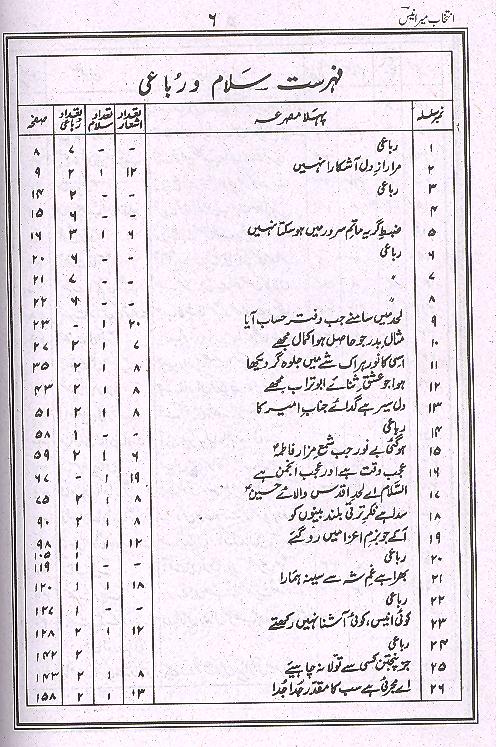 انتخاب میر انیس ۶
فہرست سلام و رُباعی
نمبر سلسلہ پہلا مصرعہ تعداد اشعار تعداد سلام تعداد رباعی صفحہ
۱ رباعی - - ۷ ۸
۲ مرا رازِ دل آشکارا نہیں ۱۲ ۱ ۲ ۹
۳ رباعی - - ۲ ۱۴
۴ - - ۶ ۱۵
۵ ضبطِ گریہ ماتمِ سرور میں ہو سکتا نہیں ۶ ۱ ۳ ۱۶
۶ رباعی - - ۶ ۲۰
۷ " - - ۷ ۲۱
۸ " - - ۶ ۲۲
۹ لحد میں سامنے جب دفترِ حساب آیا ۲۰ ۱ - ۲۳
۱۰ مثالِ بدر جو حاصل ہوا کمال مجھے ۷ ۱ ۲ ۲۷
۱۱ اسی کا نور ہر اک شے میں جلوہ گر دیکھا ۸ ۱ ۲ ۳۵
۱۲ ہوا جو عشقِ ثنائے ابو تراب مجھے ۸ ۱ ۲ ۴۳
۱۳ دل سیر ہے گدائے جنابِ امیر کا ۸ ۱ ۲ ۵۱
۱۴ رباعی - - ۱ ۵۸
۱۵ ہو گئی بے نور جب شمعِ مزارِ فاطمہؑ ۶ ۱ ۲ ۵۹
۱۶ عجب وقت ہے اور عجب انجمن ہے ۱۹ ۱ - ۶۷
۱۷ السّلام اے لحدِ اقدسِ والائے حسینؑ ۸ ۱ ۲ ۷۵
۱۸ سدا ہے فکرِ ترقی بلند بینوں کو ۸ ۱ ۲ ۹۰
۱۹ آ کے جو بزمِ اعزا میں رو گئے ۱۲ ۱ ۱ ۹۸
۲۰ رباعی - - ۱ ۱۰۵
۱ ۱۱۹
۲۱ بھرا ہے غمِ شہ سے سینہ ہمارا ۱۸ ۱ ۱ ۱۲۰
۲۲ رباعی - - ۱ ۱۲۷
۲۳ کوئی انیس، کوئی آشنا نہیں رکھتے ۱۲ ۱ ۲ ۱۲۸
۲۴ رباعی ۲ ۱۴۲
۲۵ جز پنجتن کسی سے تولّا نہ چاہیے ۸ ۱ ۲ ۱۴۳
۲۶ اے مجرئی ہے سب کا مقدّر جُدا جُدا ۱۳ ۱ ۲ ۱۵۸